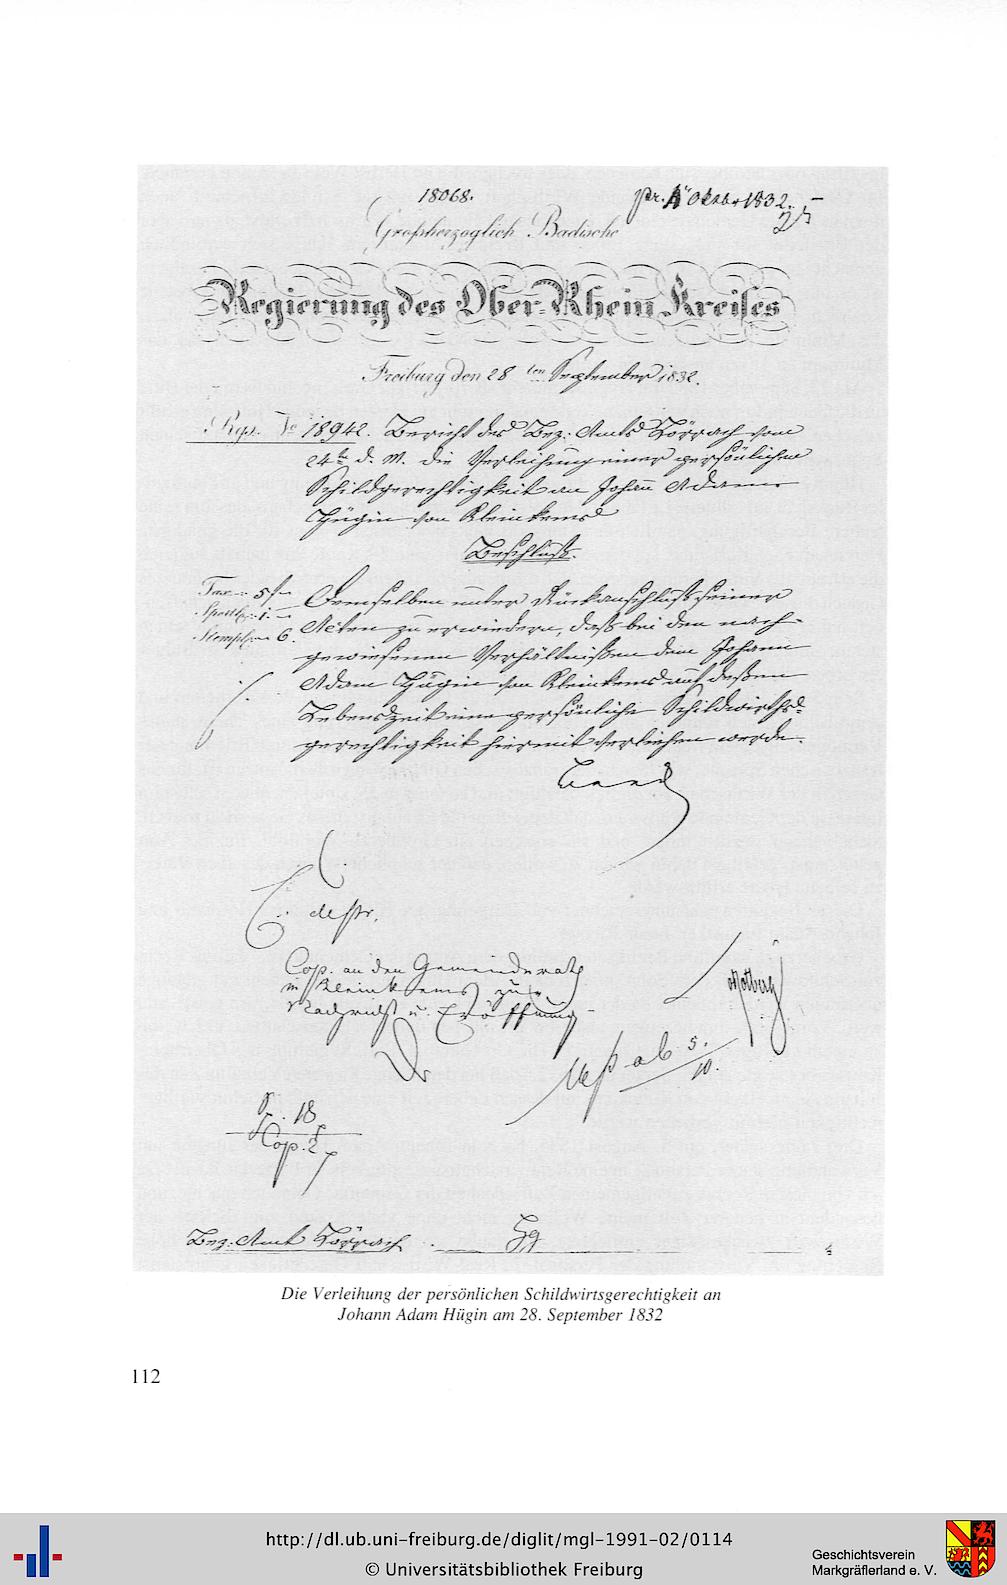 18068.
pr. 4 Oktbr 1832.
Großherzoglich Badische
Regierung des Ober-Rhein Kreises
Freiburg den 28 ten September 1832.
Rgs. No 18942. Bericht des Bez: Amts Lörrach vom
24ten d. M. die Verleihung einer persönlichen
Schildgerechtigkeit an Johann Adam
Hügin von Kleinkems
Beschluß.
Tax 5 f
Sportl: 1.
Stempl 6.
Demselben unter Rückanschluß seiner
Acten zu erwiedern, daß bei den nach-
gewiesenen Verhältnißen dem Johann
Adam Hügin von Kleinkems auf deßen
Lebenszeit eine persönliche Schildwirths-
gerechtigkeit hiermit verliehen werde.
Cop. an den Gemeinderath
in Kleinkems zur
Nachricht u. Eröffnung
ab 5.
10.
18
Cop. 2
Bez: Amt Lörrach
Die Verleihung der persönlichen Schildwirtsgerechtigkeit an
Johann Adam Hügin am 28. September 1832
112
http://dl.ub.uni-freiburg.de/diglit/mgl-1991-02/0114
© Universitätsbibliothek Freiburg
Geschichtsverein
Markgräflerland e. V.